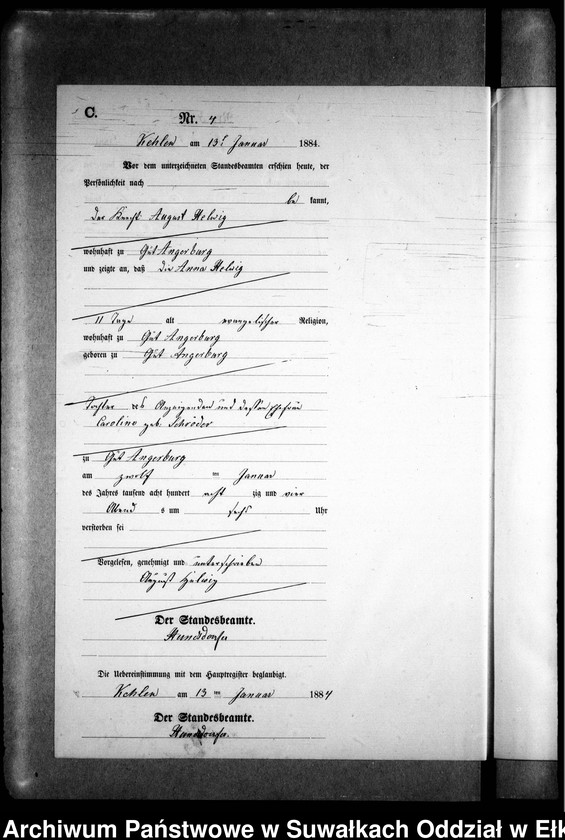 C.
Nr. 4
Kehlen am 13t Januar 1884.
Vor dem unterzeichneten Standesbeamten erschien heute, der
Persönlichkeit nach
be kannt,
der Knecht August Helwig
wohnhaft zu Gut Angerburg
und zeigte an, daß die Anna Helwig
11 Tage alt evangelischer Religion,
wohnhaft zu Gut Angerburg
geboren zu Gut Angerburg
Tochter des Anzeigenden und dessen Ehefrau
Caroline geb. Schröder
zu Gut Angerburg
am zwölf ten Januar
des Jahres tausend acht hundert acht zig und vier
Abend s um sechs Uhr
verstorben sei
Vorgelesen, genehmigt und unterschrieben
August Helwig
Der Standesbeamte.
Die Uebereinstimmung mit dem Hauptregister beglaubigt.
Kehlen am 13 ten Januar 1884
Der Standesbeamte.
Archiwum Państwowe w Suwałkach Oddział w Ełk